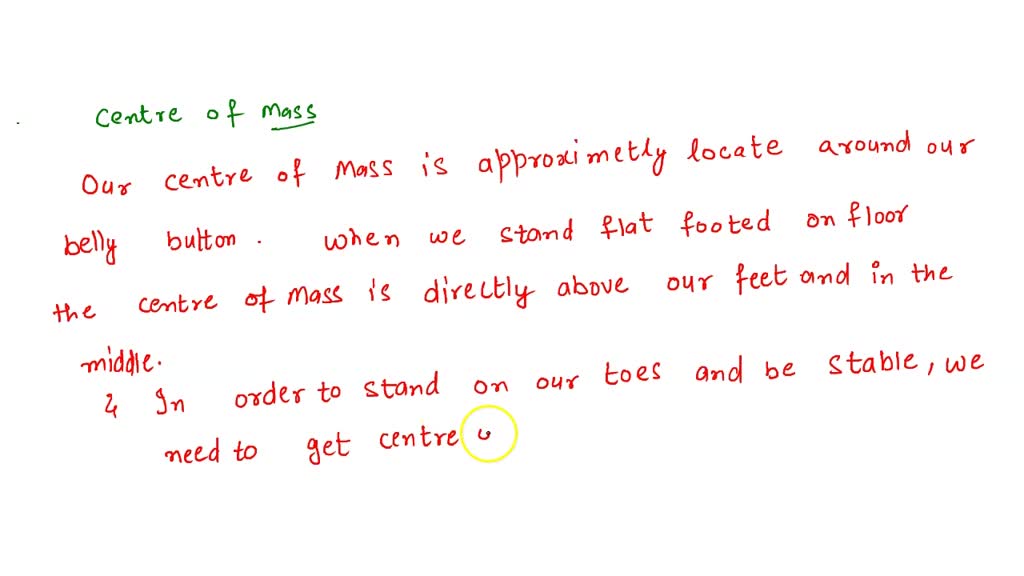 Centre of Mass
Our centre of Mass is approximetly locate around our
belly button. When we stand flat footed on floor
the centre of Mass is directly above our feet and in the
middle.
& In order to stand on our toes and be stable, we
need to get centre o